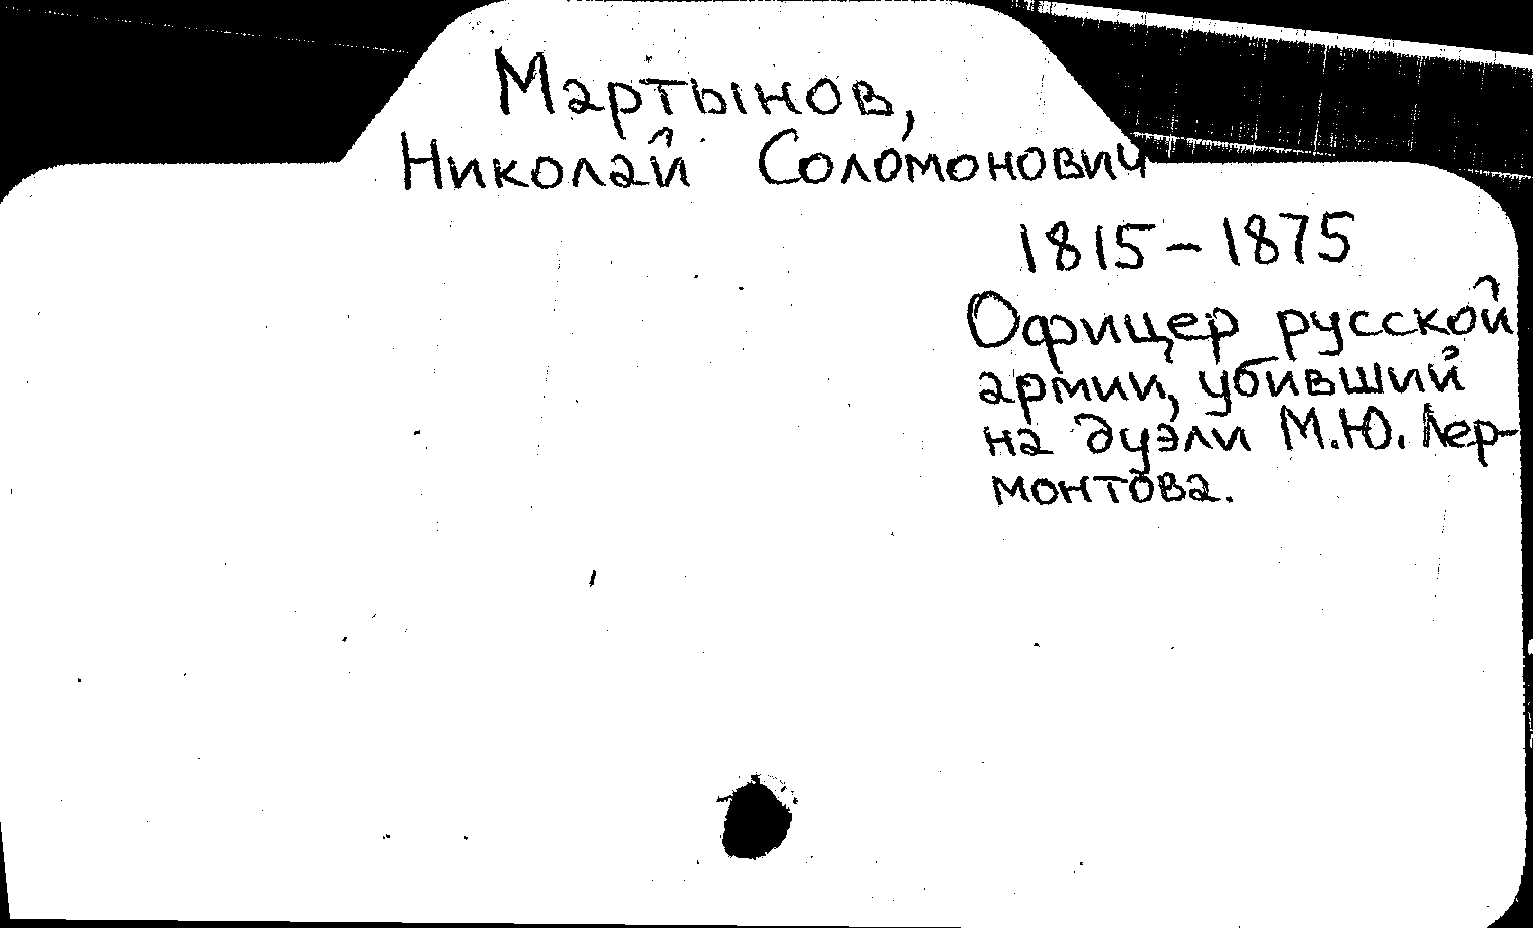 Мартынов,
Николай Соломонович
1815 – 1875
Офицер русской
армии, убивший
на дуэли М.Ю. Лер-
монтова.